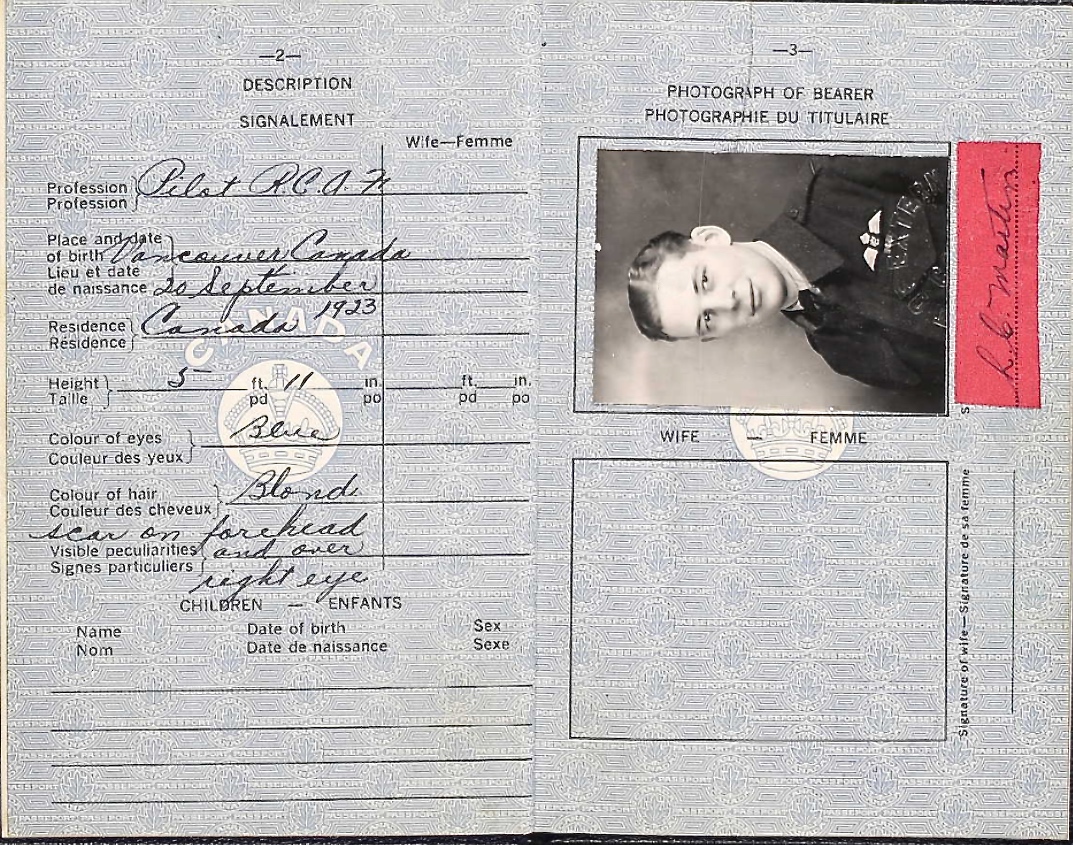 —2—
DESCRIPTION
SIGNALEMENT
Wife—Femme
Profession
Profession
Pilot R.C.A.F.
Place and date
of birth
Lieu et date
de naissance
Vancouver Canada
20 September
1923
Residence
Résidence
Canada
CANADA
Height
Taille
5 ft. 11 in. ft. in.
pd po pd po
Colour of eyes
Couleur des yeux
Blue
Colour of hair
Couleur des cheveux
Blond
Visible peculiarities
Signes particuliers
scar on forehead
and over
right eye
CHILDREN — ENFANTS
Name Date of birth Sex
Nom Date de naissance Sexe
—3—
PHOTOGRAPH OF BEARER
PHOTOGRAPHIE DU TITULAIRE
WIFE — FEMME
Signature of wife—Signature de sa femme